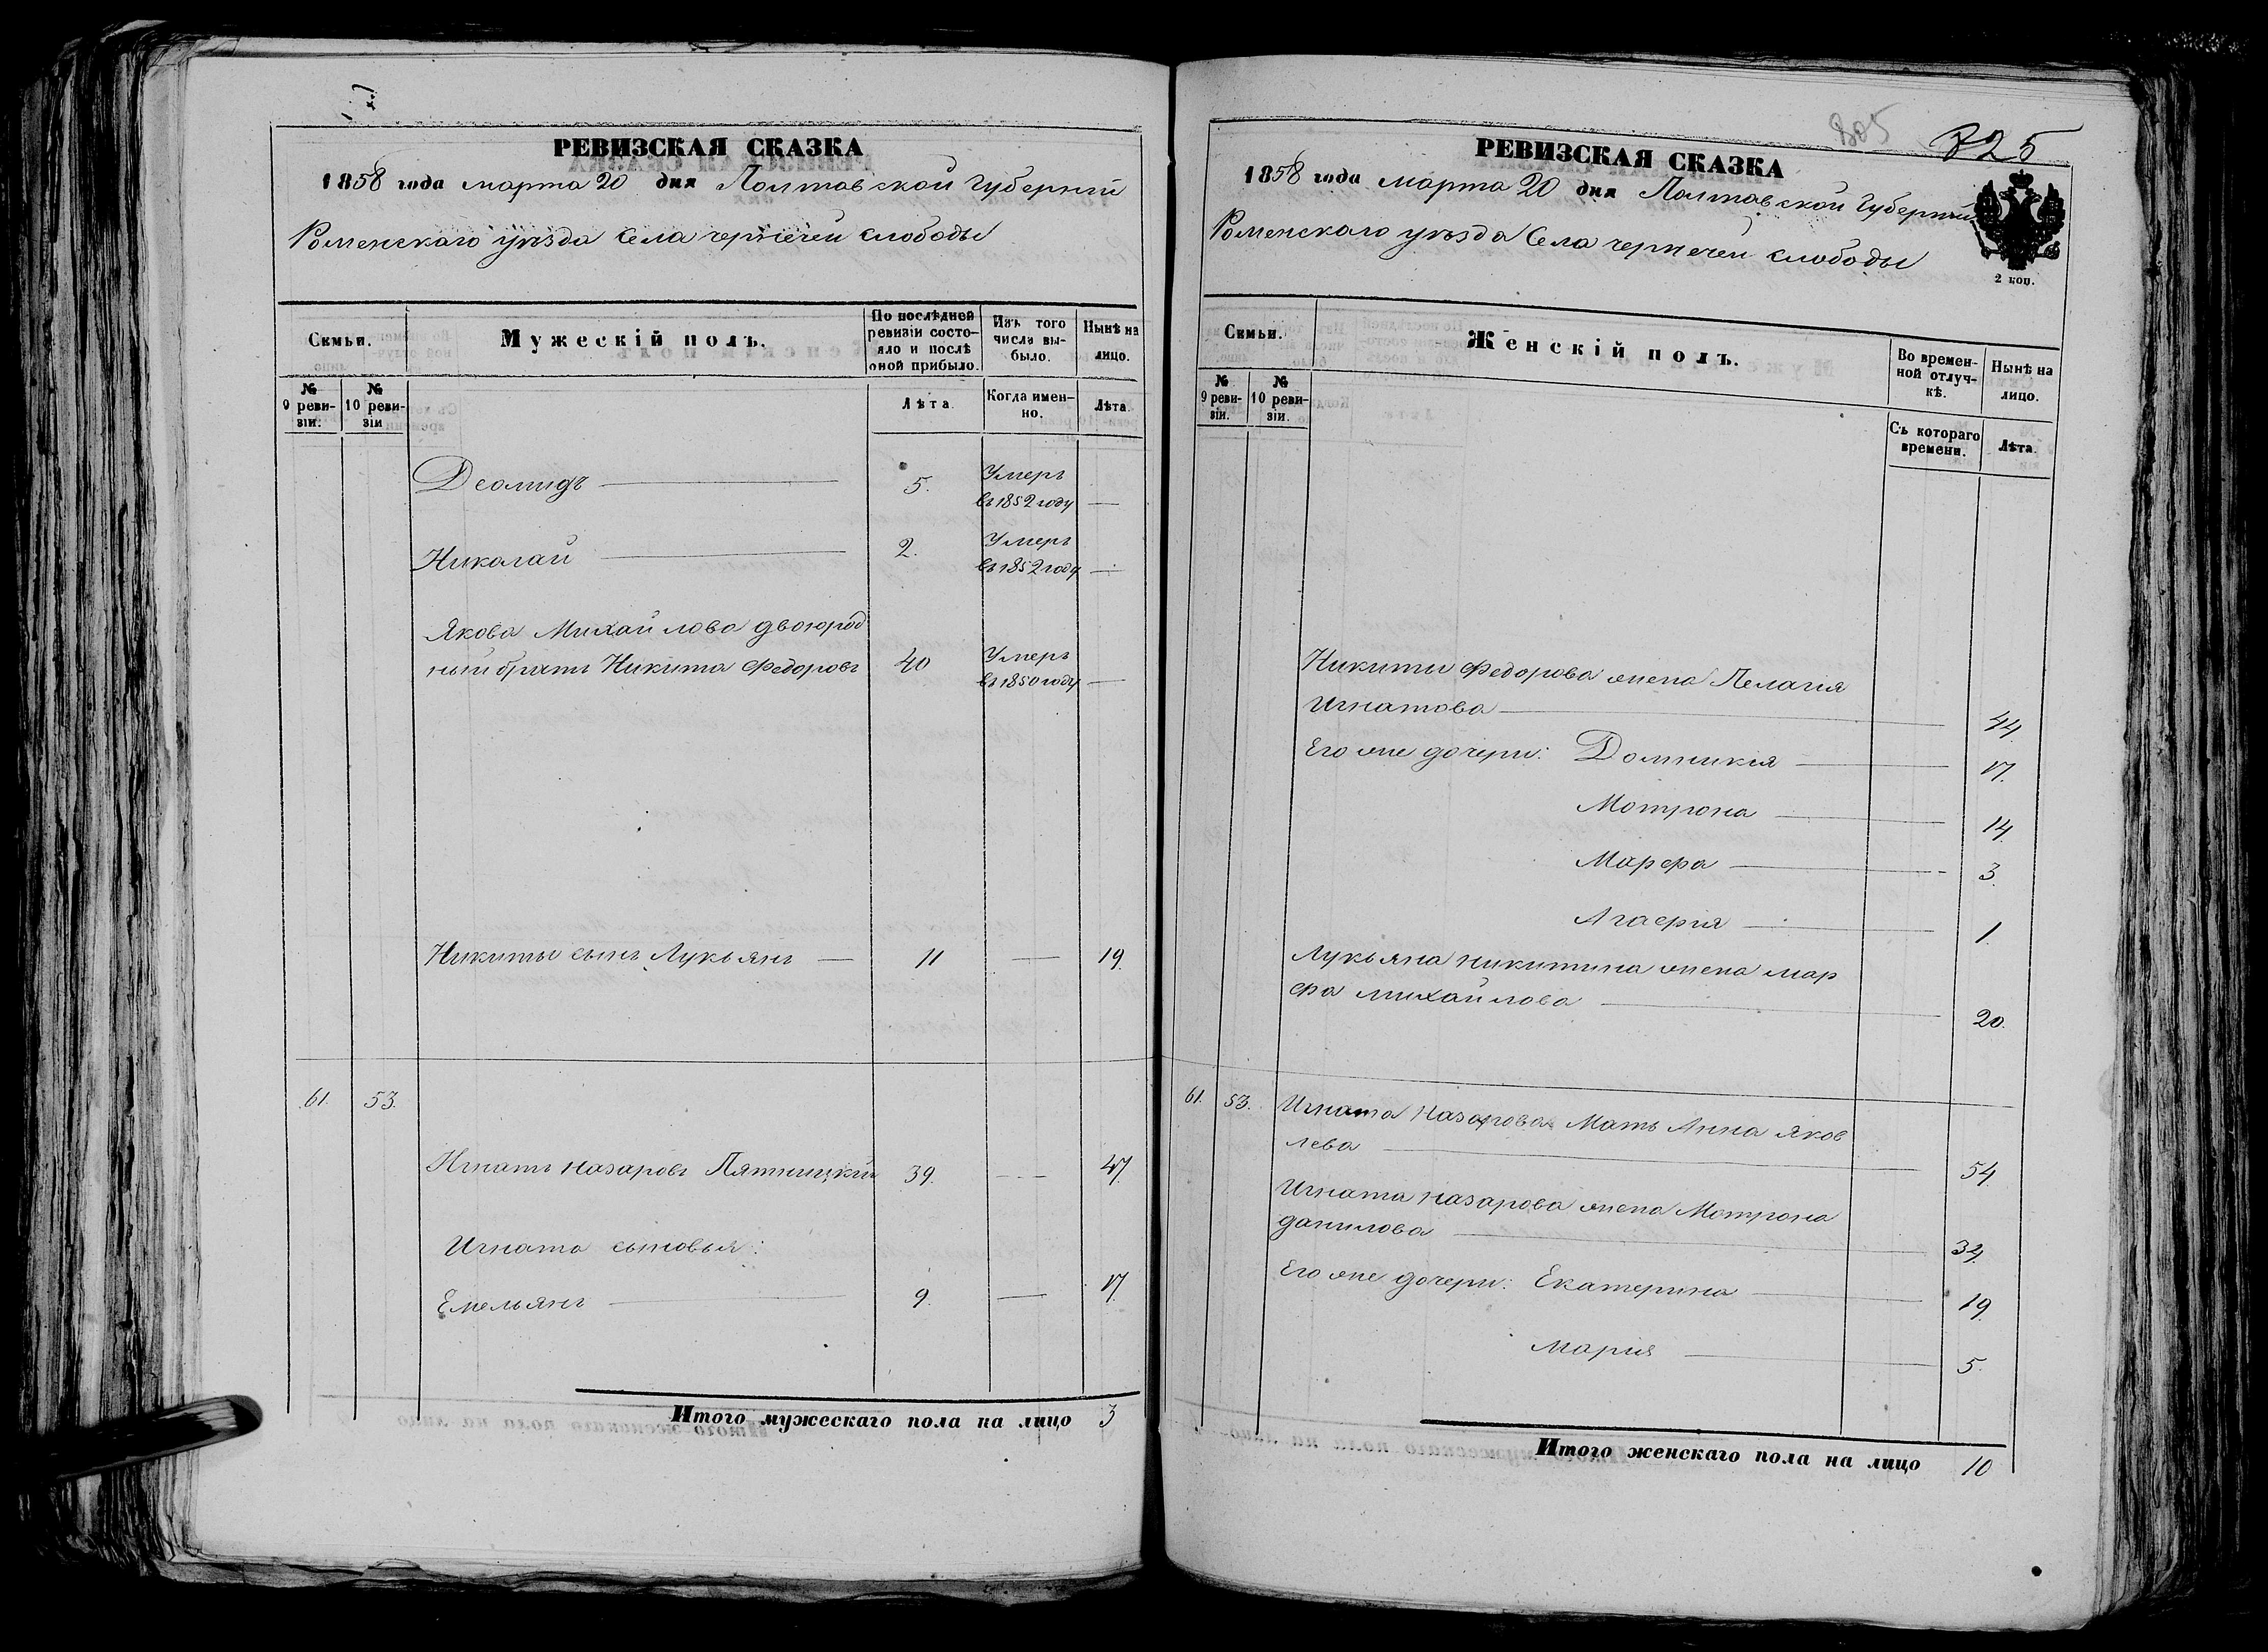 РЕВИЗСКАЯ СКАЗКА
1858 года марта 20 дня Полтавской Губерніи
Роменскаго уѣзда Села чернечей слободы
Семьи.
Мужескій полъ.
По послѣдней ревизіи состо-
яло и послѣ
оной прибыло.
Изъ того
числа вы-
было.
Нынѣ на
лицо.
№
9 реви-
зіи.
№
10 реви-
зіи
Лѣта
Когда имен-
но.
Лѣта.
Деомидъ 5. Умеръ
въ 1852 году —
Николай 2. Умеръ
въ 1852 году —
Якова Михайлова двоюрод
ный братъ Никита Федоровъ 40 Умеръ
въ 1850 году —
Никиты сынъ Лукьянъ — 11 — 19.
61. 53.
Игнатъ Назаровъ Пятницкій 39. — 47.
Игната сыновья:
Емельянъ 9. — 17.
Итого мужескаго пола на лицо 3
805 825
РЕВИЗСКАЯ СКАЗКА
1858 года марта 20 дня Полтавской Губерніи
Роменскаго уѣзда Села чернечей слободы
2 коп.
Семьи.
Женскій полъ.
Во времен-
ной отлуч-
кѣ.
Нынѣ на
лицо.
№
9 реви-
зіи.
№
10 реви-
зіи.
Съ котораго
времени.
Лѣта.
Никиты Федорова жена Пелагія
Игнатова 44.
Его же дочери: Домникія 17.
Мотрона 14.
Марфа 3.
Агафія 1.
Лукьяна никитина жена мар
фа михайлова 20.
61. 53. Игната Назарова Мать Анна Яков
лева 54
Игната Назарова жена Мотрона
данилова 34.
Его же дочери: Екатерина 19.
Марія 5.
Итого женскаго пола на лицо 10